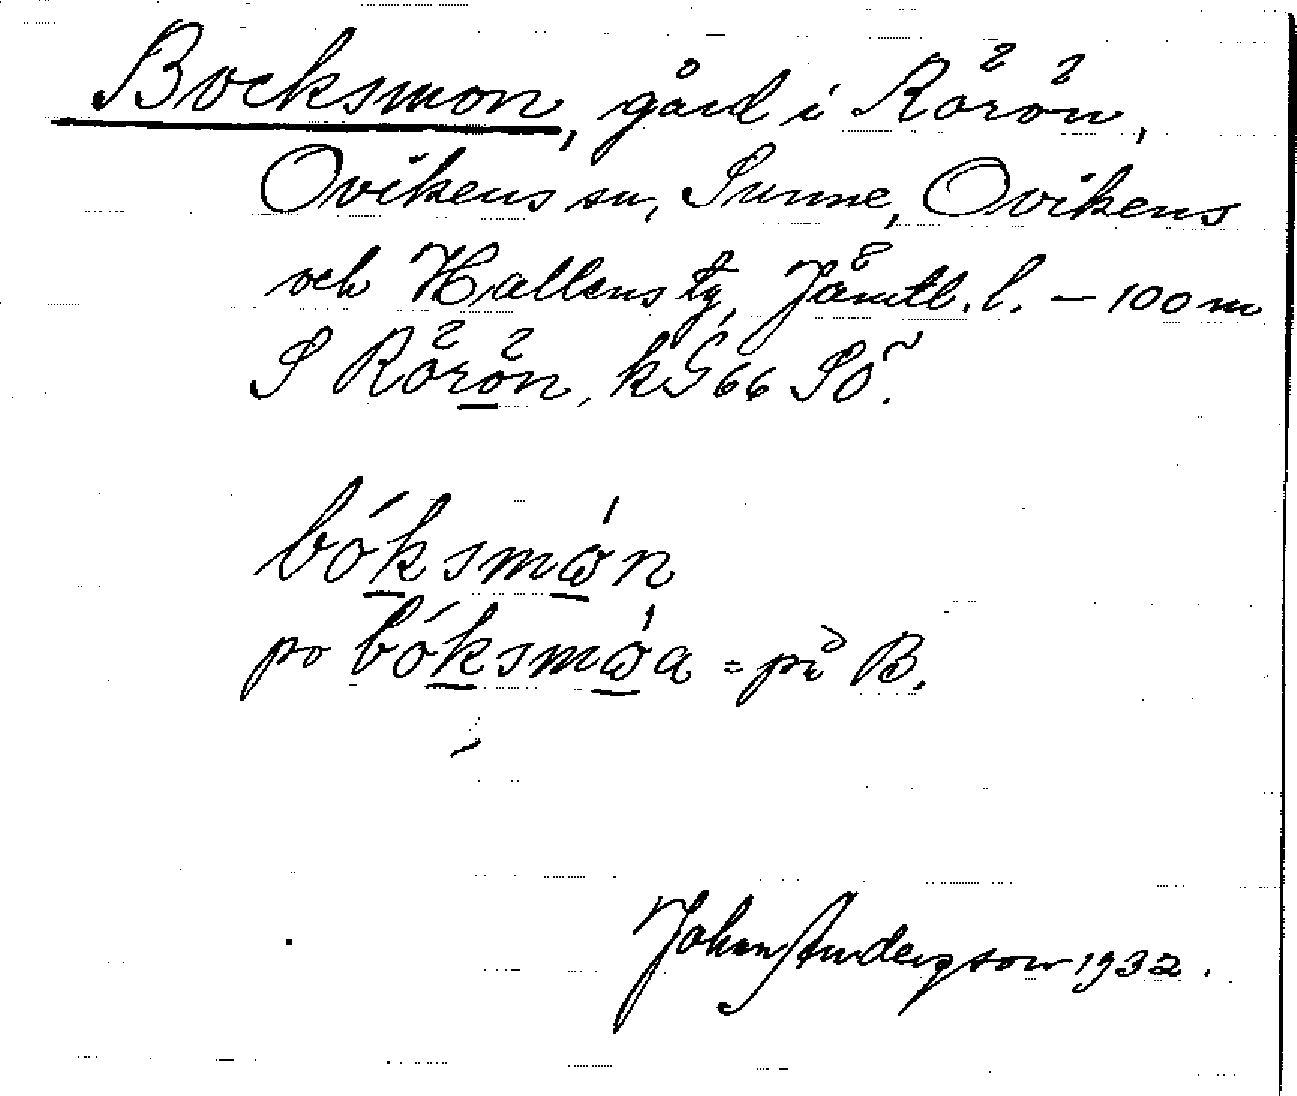 Bocksmon, gård i Rörön,
Ovikens sn, Sunne, Ovikens
och Hallens tg, Jämtl. l. – 100 m
S Rörön, kG66 SÖ.
bóksmɷ́n
po bóksmɷ́a = på B.
Johan Andersson 1932.